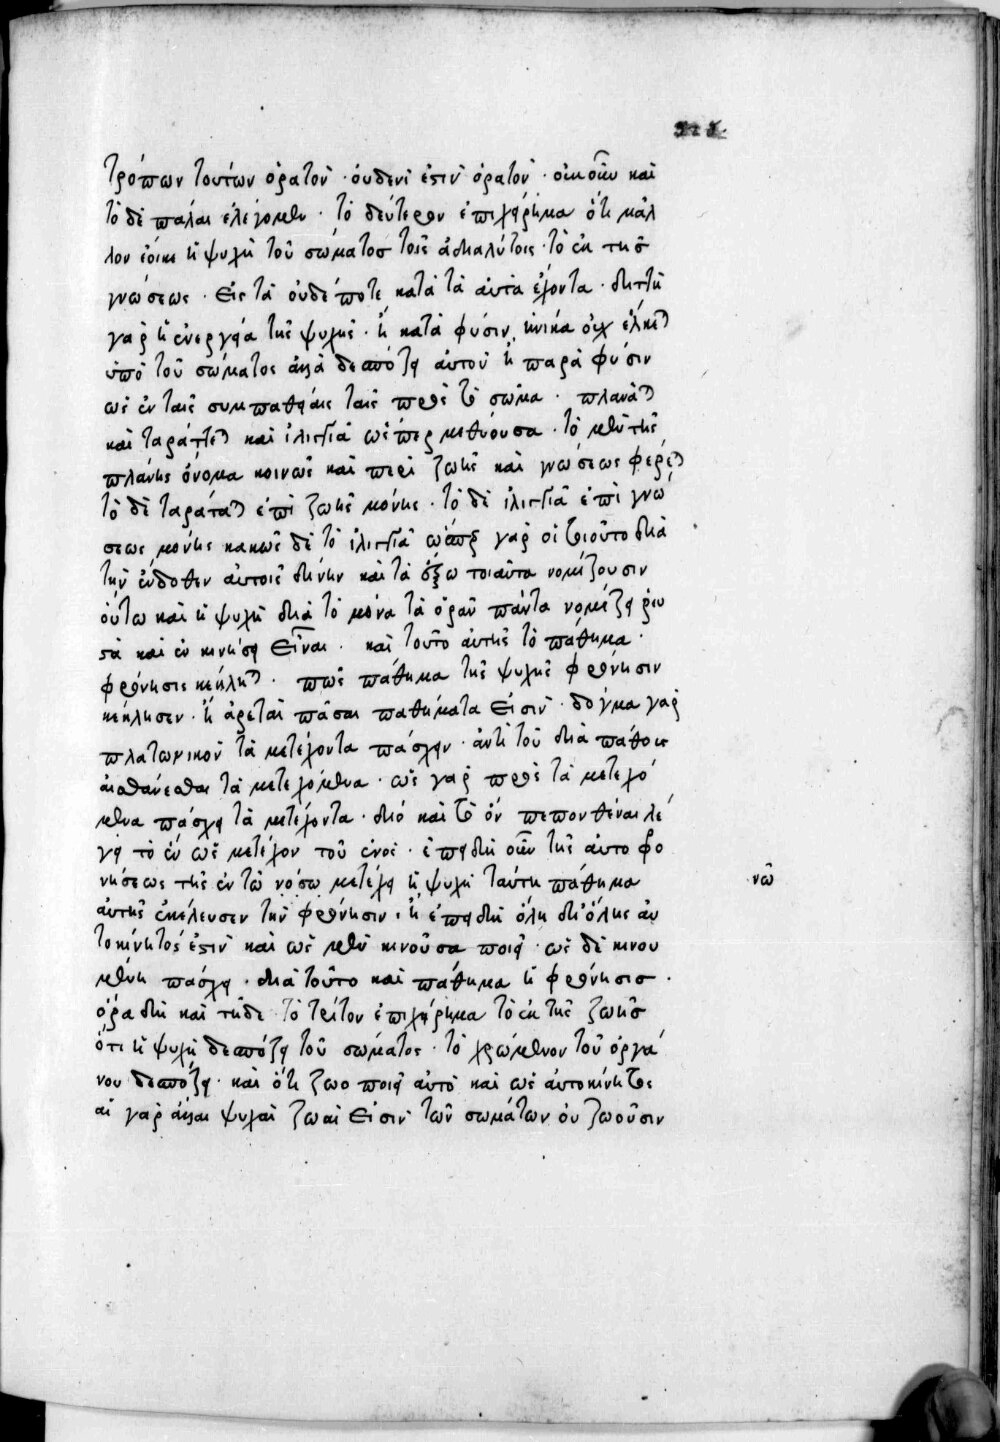 τρόπων τουτων ὁρατὸν· οὐδενὶ ἐστιν ὁρατὸν· οὐκοῦν καὶ
τὸ δὲ πάλαι ἐλέγομεν· τὸ δεύτερον ἐπιχείρημα ὅτι μᾶλ
λον ἔοικε ἡ ψυχὴ τοῦ σώματος τοῖς ἀδιαλύτοις· τὸ ἐκ τῆς
γνώσεως· εἰς τὰ οὐδέποτε κατὰ τὰ αὐτὰ ἔχοντα· διττὴ
γὰρ ἡ ἐνεργεία τῆς ψυχῆς· ἢ κατὰ φύσιν, ἡνίκα οὐχ ἕλκεται
ὑπὸ τοῦ σώματος ἀλλὰ δεσπόζει αὐτοῦ ἢ παρὰ φύσιν
ὡς ἐν ταῖς συμπαθείαις ταῖς πρὸς τὸ σῶμα· πλανᾶται
καὶ ταράττεται καὶ ἰλιγγιᾶ ὥσπερ μεθύουσα· τὸ μὲν τῆς
πλάνης ὄνομα κοινῶς καὶ περὶ ζωῆς καὶ γνώσεως φέρεται
τὸ δὲ ταράττεται ἐπὶ ζωῆς μόνης· τὸ δὲ ἰλιγγιᾶ ἐπὶ γνώ
σεως μόνης κακῶς δὲ τὸ ἰλιγγιᾶ ὥσπερ γὰρ οἱ τοιοῦτο διὰ
τὴν ἔνδοθεν αὐτοῖς δίνην καὶ τὰ ἔξω τοιαῦτα νομίζουσιν
οὕτω καὶ ἡ ψυχὴ διὰ τὸ μόνα τὰ ὁρᾶν πάντα νομίζει ῥευ
στὰ καὶ ἐν κινήσει εἶναι· καὶ τοῦτο αὐτῆς τὸ πάθημα·
φρόνησις κέκληται· πῶς πάθημα τῆς ψυχῆς φρόνησιν
κέκλησεν· ἢ ἀρεταὶ πᾶσαι παθήματα εἰσὶν· δόγμα γὰρ
πλατωνικὸν τὰ μετέχοντα πάσχειν· ἀντὶ τοῦ διὰ πάθους
αἰσθάνεσθαι τὰ μετεχόμενα· ὡς γὰρ πρὸς τὰ μετεχό
μενα πάσχει τὰ μετέχοντα· διὸ καὶ τὸ ὂν πεπονθέναι λέ
γει τὸ ἓν ὡς μετέχον τοῦ ἑνὸς· ἐπειδὴ οὖν τῆς αὐτοφρο
νήσεως τῆς ἐν τῶ νόσω μετέχει ἡ ψυχὴ ταύτη πάθημα
αὐτῆς ἐκέλευσεν τὴν φρόνησιν· ἢ ἐπειδὴ ὅλη δι' ὅλης αὐ
τοκίνητός ἐστιν καὶ ὡς μὲν κινοῦσα ποιεῖ· ὡς δὲ κινου
μένη πάσχει· διὰ τοῦτο καὶ πάθημα ἡ φρόνησις·
ὅρα δὴ καὶ τῆδε τὸ τρίτον ἐπιχείρημα τὸ ἐκ τῆς ζωῆς
ὅτι ἡ ψυχὴ δεσπόζει τοῦ σώματος· τὸ χρώμενον τοῦ ὀργά
νου δεσπόζει· καὶ ὅτι ζωοποιεῖ αὐτὸ καὶ ὡς αὐτοκίνητος
αἱ γὰρ ἄλλαι ψυχαὶ ζωαὶ εἰσὶν τῶν σωμάτων οὐ ζωοῦσιν
νῶ